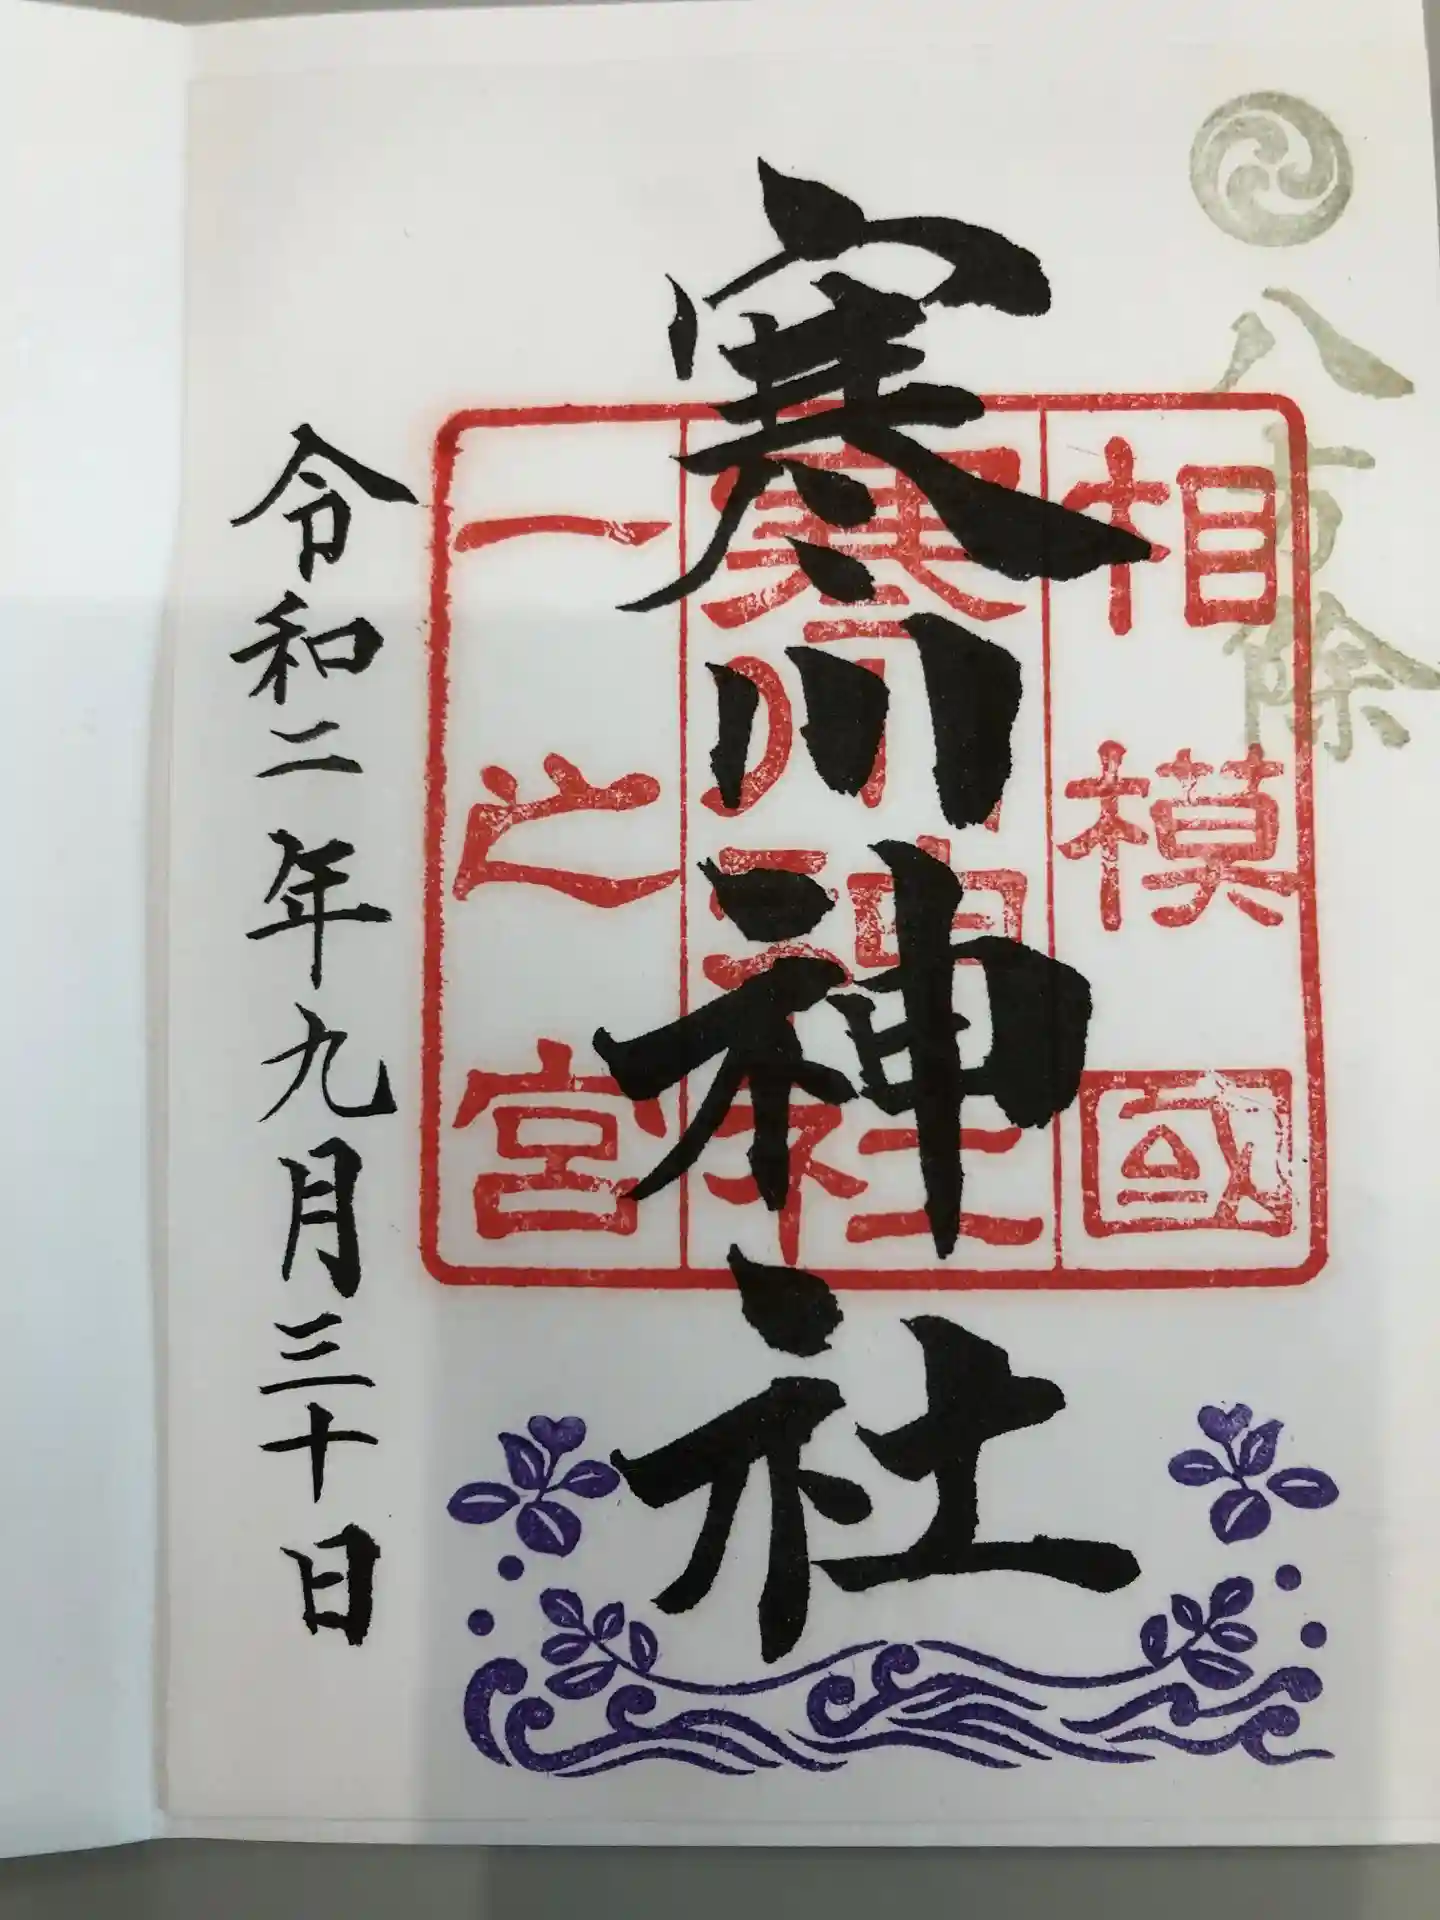 八方除
相模國
寒川神社
一之宮
寒川神社
令和二年九月三十日